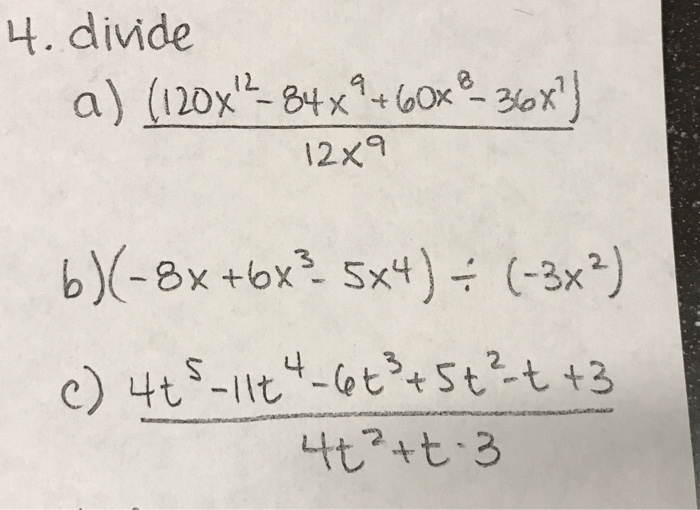 4. divide
a) (120x¹²-84x⁹+60x⁸-36x⁷)
12x⁹
b)(-8x+6x³-5x4)÷(-3x²)
c) 4t⁵-11t⁴-6t³+5t²-t+3
4t²+t·3